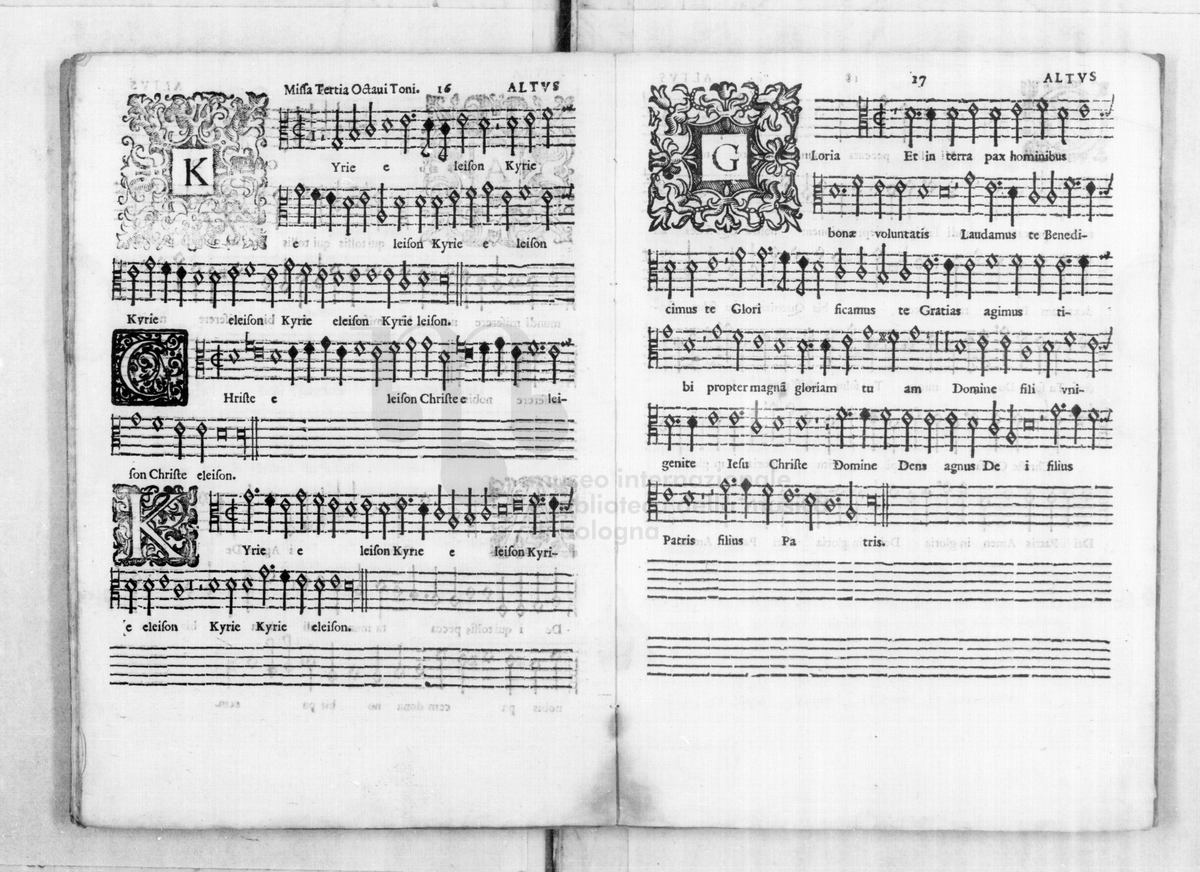 Missa Tertia Octaui Toni. 16 ALTVS
K
Yrie e leison Kyrie
e leison Kyrie e leison
Kyrie eleison Kyrie eleison Kyrie leison.
C
Hriste e leison Christe e lei-
son Christe eleison.
K
Yrie e leison Kyrie e leison Kyri-
e eleison Kyrie Kyrie eleison.
17 ALTVS
G
Loria Et in terra pax hominibus
bonæ voluntatis Laudamus te Benedi-
cimus te Glori ficamus te Gratias agimus ti-
bi propter magnã gloriam tu am Domine fili vni-
genite Iesu Christe Domine Dens agnus De i filius
Patris filius Pa tris.
museo internazionale
biblioteca della musica
bologna